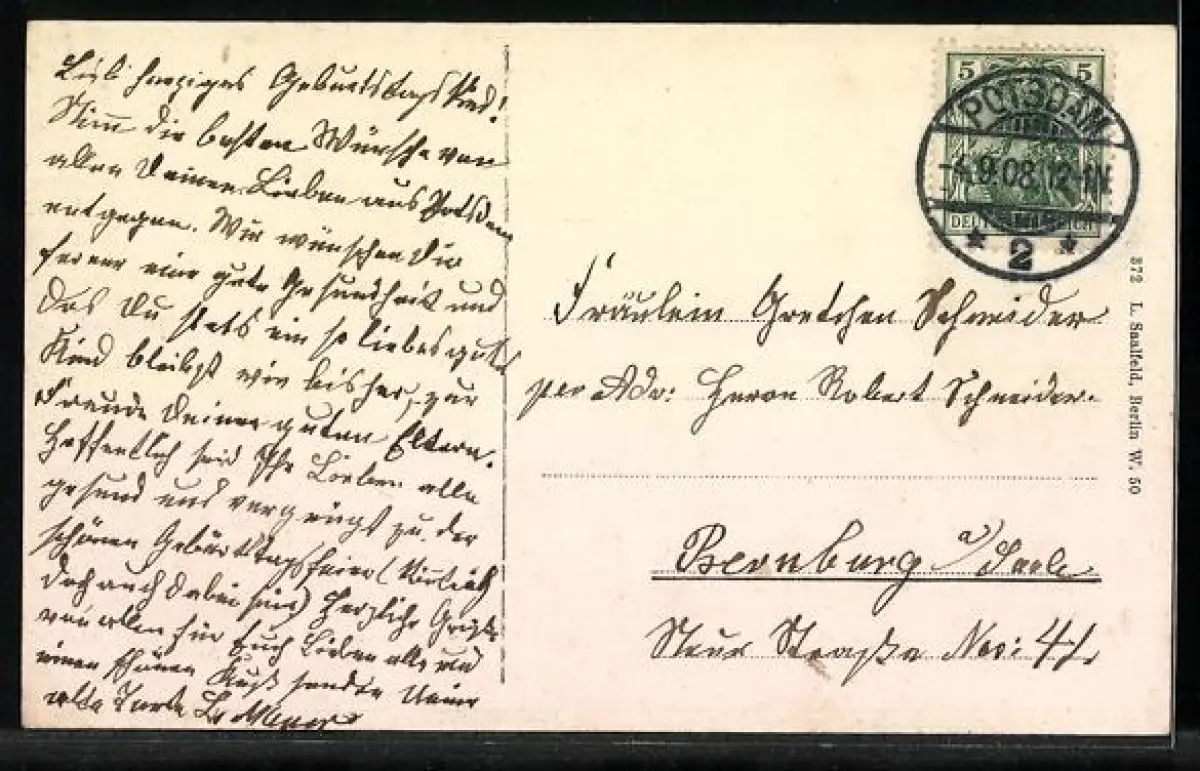 Lieb herziges Geburtstagskind!
Nimm die besten Wünsche von
allen Deinen Lieben aus Potsdam
entgegen. Wir wünschen Dir
ferner eine gute Gesundheit und
das Du stets ein so liebes gutes
Kind bleibst wie bisher, zur
Freude Deiner guten Eltern.
Hoffentlich seid Ihr Lieben alle
gesund und vergnügt zu der
schönen Geburtstagsfeier (
doch auch dabei sein) Herzliche Grüße
von allen für Euch Lieben alle und
einen schönen Kuß sendet Deine
alte Tante
5 5
POTSDAM
-4.9.08.12-1N.
DEUTSCHES REICH
* 2 *
Fräulein Gretchen Schneider
per Adr: Herrn Robert Schneider.
Bernburg a/Saale
Neue Straße No: 41
372 L. Saalfeld, Berlin W. 50